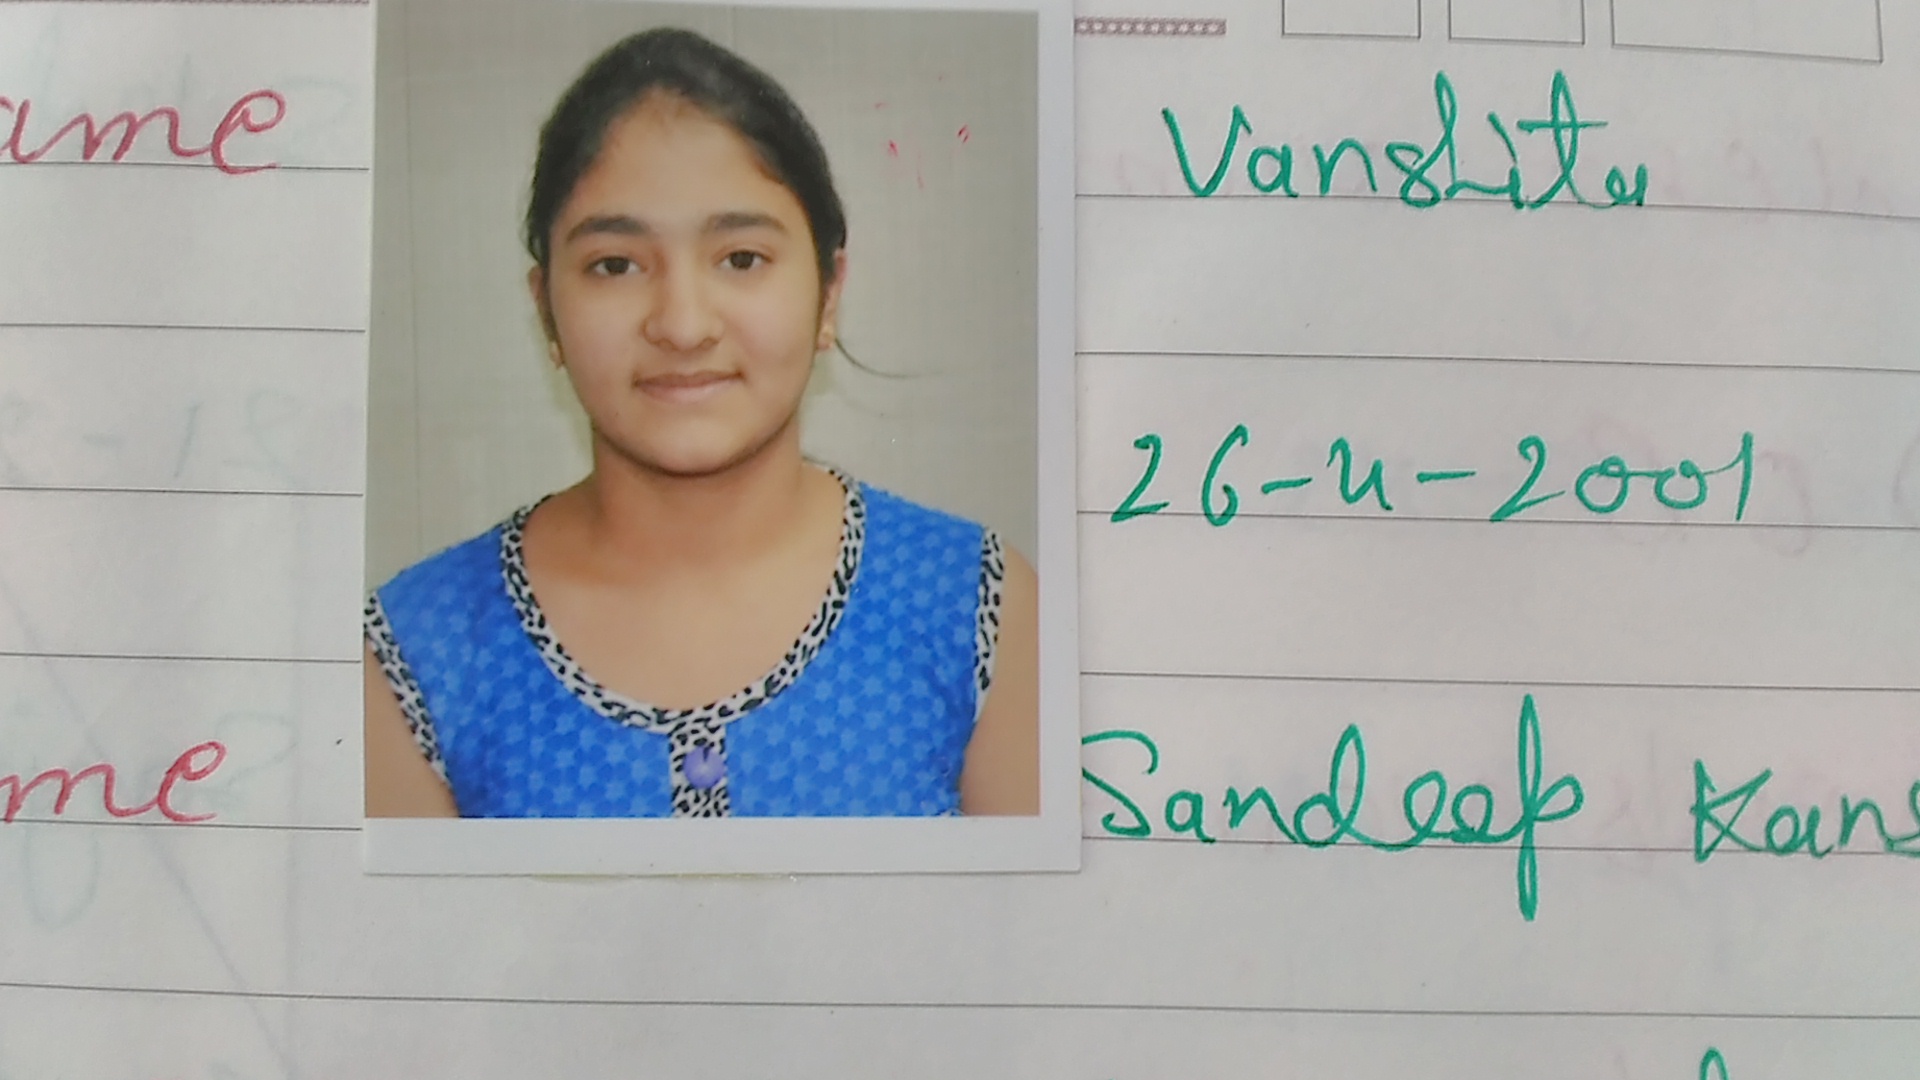 ame Vanshita
26-4-2001
me Sandeep Kans